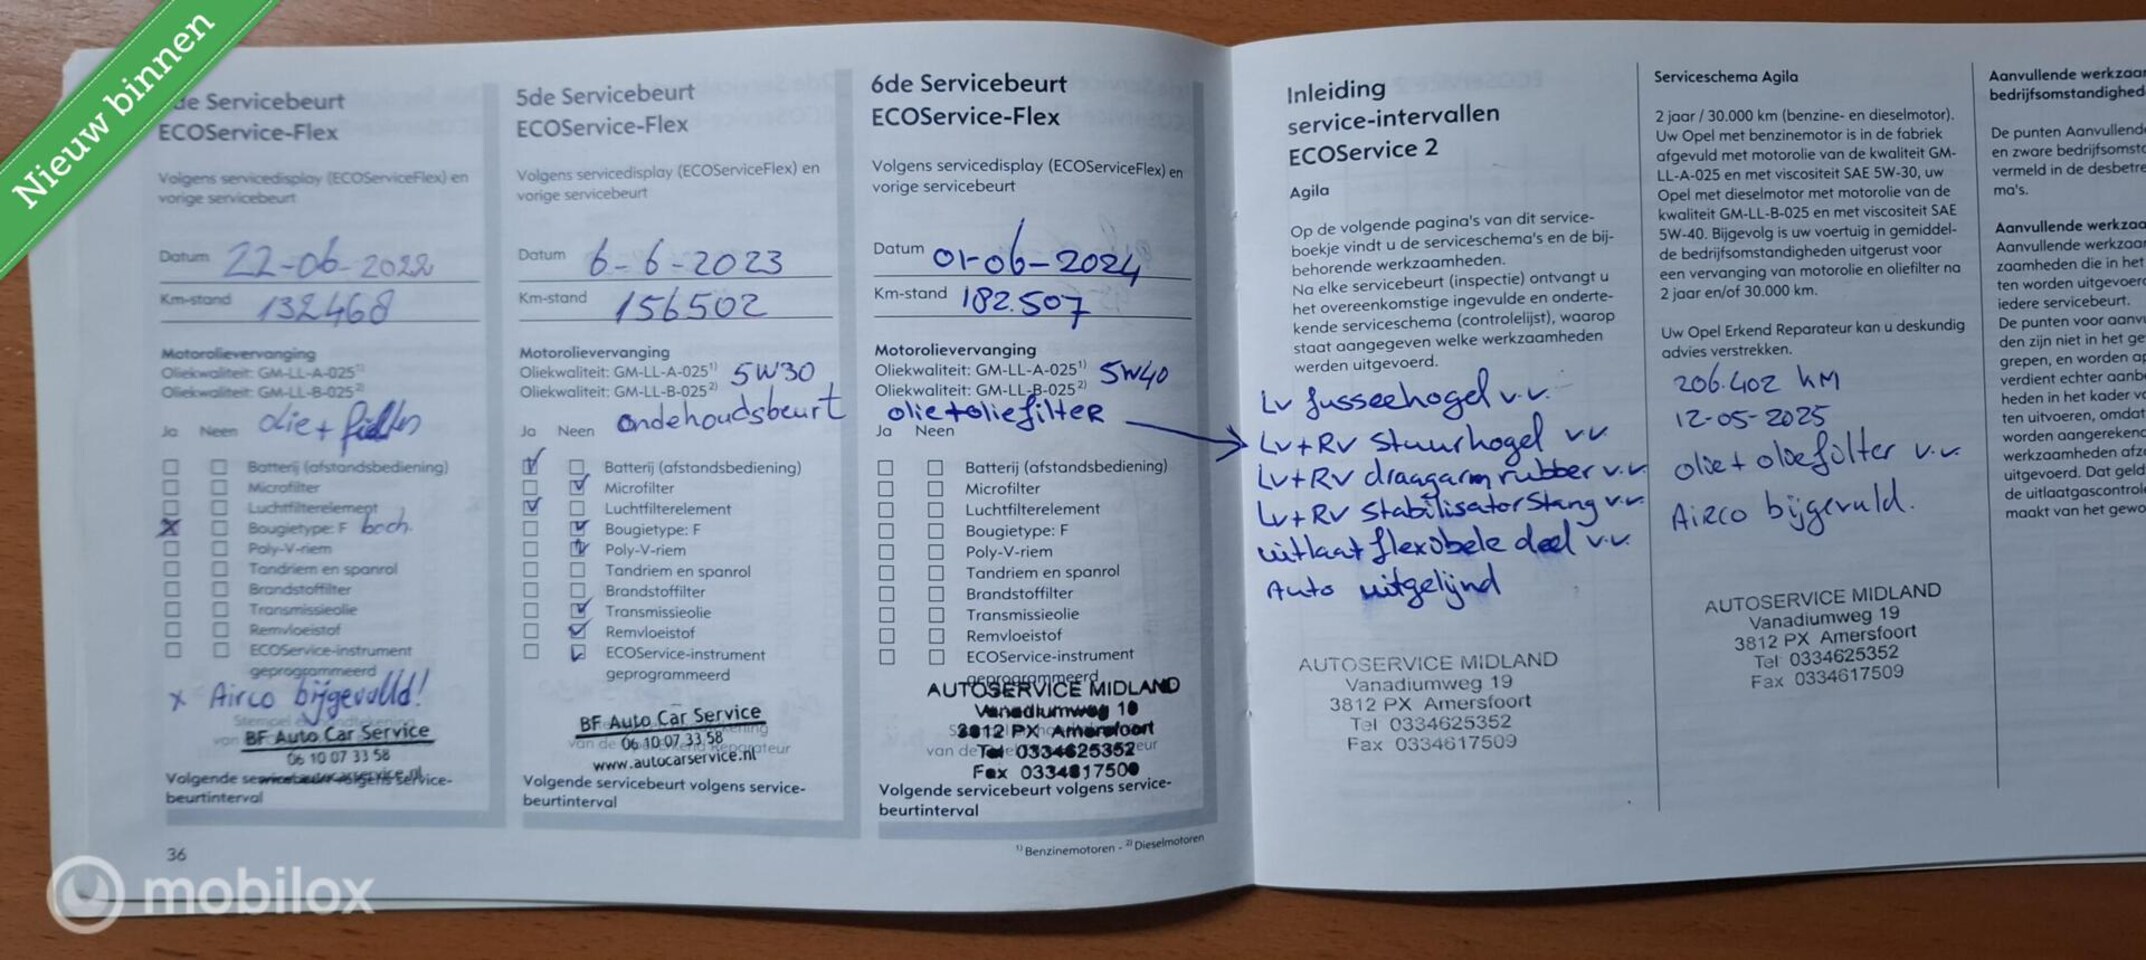 Nieuw binnen
de Servicebeurt
ECOService-Flex
Volgens servicedisplay (ECOServiceFlex) en
vorige servicebeurt
Datum 22-06-2022
Km-stand 132468
Motorolievervanging
Oliekwaliteit: GM-LL-A-025¹⁾
Oliekwaliteit: GM-LL-B-025²⁾
olie +
Ja Neen
Batterij (afstandsbediening)
Microfilter
Luchtfilterelement
X Bougietype: F
Poly-V-riem
Tandriem en spanrol
Brandstoffilter
Transmissieolie
Remvloeistof
ECOService-instrument
geprogrammeerd
x Airco bijgevuld!
Stempel en handtekening
BF Auto Car Service
06 10 07 33 58
Volgende servicebeurt volgens service-
beurtinterval
36
5de Servicebeurt
ECOService-Flex
Volgens servicedisplay (ECOServiceFlex) en
vorige servicebeurt
Datum 6-6-2023
Km-stand 156502
Motorolievervanging
Oliekwaliteit: GM-LL-A-025¹⁾ 5W30
Oliekwaliteit: GM-LL-B-025²⁾
ondehoudsbeurt
Ja Neen
Batterij (afstandsbediening)
Microfilter
Luchtfilterelement
Bougietype: F
Poly-V-riem
Tandriem en spanrol
Brandstoffilter
Transmissieolie
Remvloeistof
ECOService-instrument
geprogrammeerd
BF Auto Car Service
06 10 07 33 58
www.autocarservice.nl
Volgende servicebeurt volgens service-
beurtinterval
6de Servicebeurt
ECOService-Flex
Volgens servicedisplay (ECOServiceFlex) en
vorige servicebeurt
Datum 01-06-2024
Km-stand 182.507
Motorolievervanging
Oliekwaliteit: GM-LL-A-025¹⁾ 5W40
Oliekwaliteit: GM-LL-B-025²⁾
olie+oliefilter
Ja Neen
Batterij (afstandsbediening)
Microfilter
Luchtfilterelement
Bougietype: F
Poly-V-riem
Tandriem en spanrol
Brandstoffilter
Transmissieolie
Remvloeistof
ECOService-instrument
geprogrammeerd
AUTOSERVICE MIDLAND
Vanadiumweg 19
3812 PX Amersfoort
Tel 0334625352
Fax 0334617509
Volgende servicebeurt volgens service-
beurtinterval
¹⁾ Benzinemotoren - ²⁾ Dieselmotoren
Inleiding
service-intervallen
ECOService 2
Agila
Op de volgende pagina's van dit service-
boekje vindt u de serviceschema's en de bij-
behorende werkzaamheden.
Na elke servicebeurt (inspectie) ontvangt u
het overeenkomstige ingevulde en onderte-
kende serviceschema (controlelijst), waarop
staat aangegeven welke werkzaamheden
werden uitgevoerd.
Lv fusseehogel v.v.
Lv+Rv Stuurhogel vv
Lv+Rv draagarm rubber v.v.
Lv+Rv Stabilisator Stang v.v.
uitlaat flexibele deel v.v.
Auto uitgelijnd
AUTOSERVICE MIDLAND
Vanadiumweg 19
3812 PX Amersfoort
Tel 0334625352
Fax 0334617509
Serviceschema Agila
2 jaar / 30.000 km (benzine- en dieselmotor).
Uw Opel met benzinemotor is in de fabriek
afgevuld met motorolie van de kwaliteit GM-
LL-A-025 en met viscositeit SAE 5W-30, uw
Opel met dieselmotor met motorolie van de
kwaliteit GM-LL-B-025 en met viscositeit SAE
5W-40. Bijgevolg is uw voertuig in gemiddel-
de bedrijfsomstandigheden uitgerust voor
een vervanging van motorolie en oliefilter na
2 jaar en/of 30.000 km.
Uw Opel Erkend Reparateur kan u deskundig
advies verstrekken.
206.402 KM
12-05-2025
olie+ oliefilter v.v.
Airco bijgevuld.
AUTOSERVICE MIDLAND
Vanadiumweg 19
3812 PX Amersfoort
Tel 0334625352
Fax 0334617509
Aanvullende werkzaam
bedrijfsomstandighed
De punten Aanvullend
en zware bedrijfsomst
vermeld in de desbetre
ma's.
Aanvullende werkzaa
Aanvullende werkzaa
zaamheden die in het
ten worden uitgevoer
iedere servicebeurt.
De punten voor aanv
den zijn niet in het ge
grepen, en worden ap
verdient echter aanb
heden in het kader v
ten uitvoeren, omdat
worden aangerekend
werkzaamheden afz
uitgevoerd. Dat geld
de uitlaatgascontrol
maakt van het gewo
mobilox